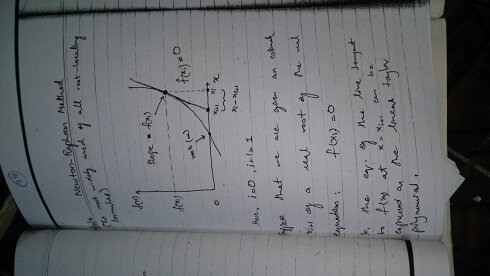 Newton-Raphson Method
(The most widely used of all root-locating
formulas)
f(x)
Slope = f'(xi)
f(xi) = 0
f(xi)
root (xr)
0
xi+1
xi
x
xi - xi+1
Here, i=0, i+1=1
Suppose that we are given an estimate
xi+1 of a real root of the real
equation: f(xi) = 0
the eqn: of the line tangent
to f(x) at x = xi+1 can be
expressed as the linear taylor
polynomial.